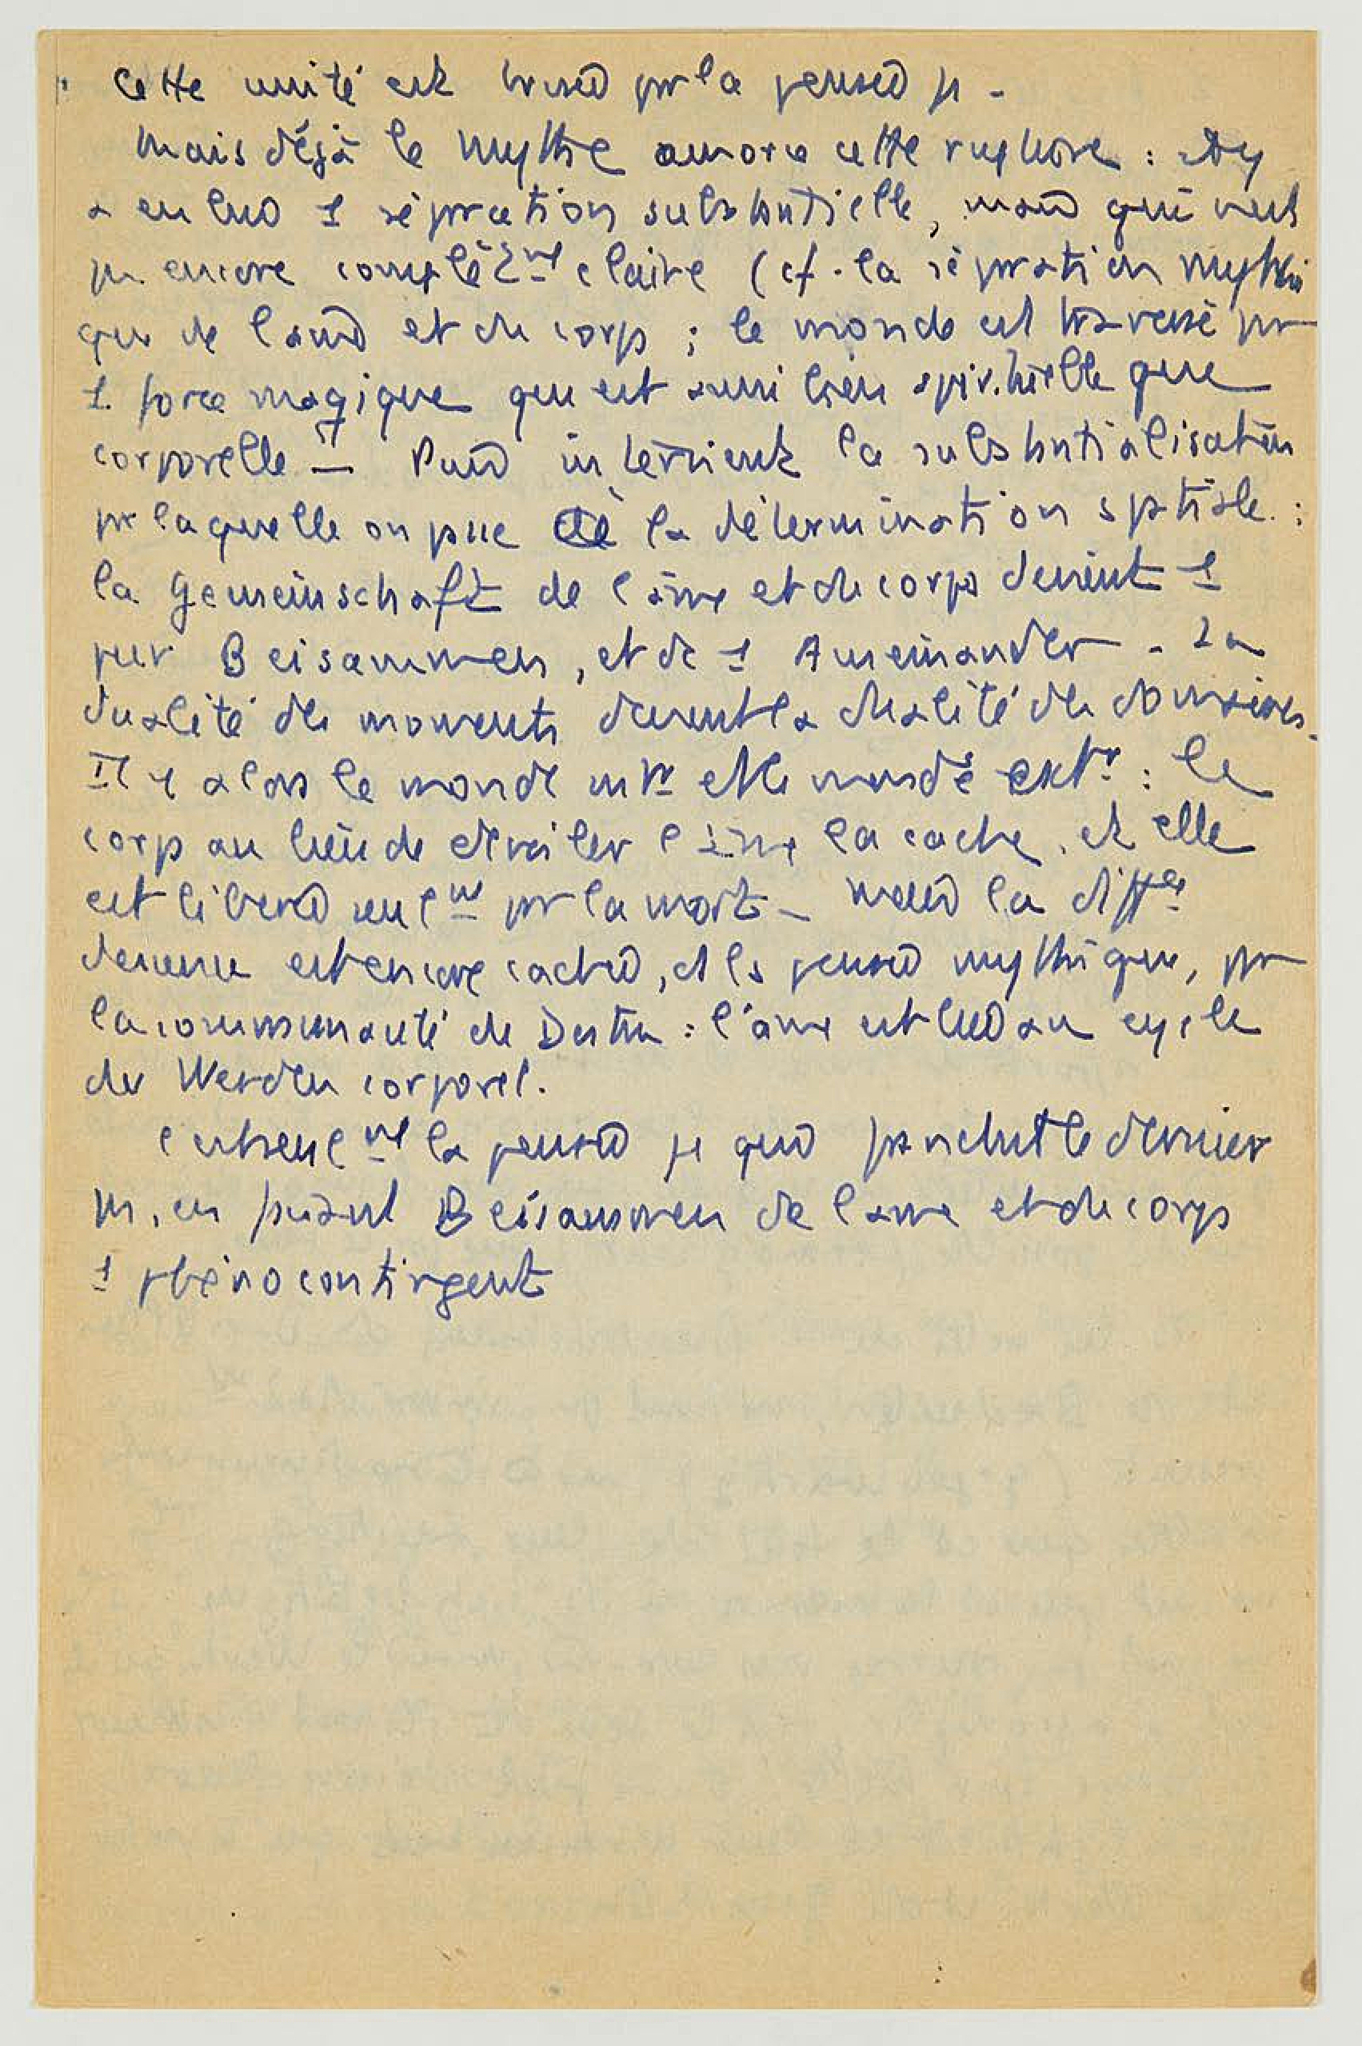 Cette unité est brisée pr la pensée φ.
Mais déjà le mythe amorce cette rupture : il y
a en lui 1 séparation substantielle, mais qui n'est
pas encore complètemt claire (cf. la séparation mythi
que de l'âme et du corps ; le monde est traversé pr
1 force magique qui est aussi bien spirituelle que
corporelle — Puis intervient la substantialisation
pr laquelle on passe à la détermination spatiale :
la Gemeinschaft de l'âme et du corps devient 1
pur Beisammen, et de 1 Aneinander. La
dualité des moments devient la dualité des domaines.
Il y a alors le monde intr et le monde extr : le
corps au lieu de dévoiler l'âme la cache, et elle
est libérée seulmt pr la mort — Mais la diffce
devenue est encore cachée, ds la pensée mythique, pr
la communauté de Destin : l'âme est liée au cycle
du Werden corporel.
C'est seulmt la pensée φ qui franchit le dernier
pas, en faisant Beisammen de l'âme et du corps
1 phéno contingent